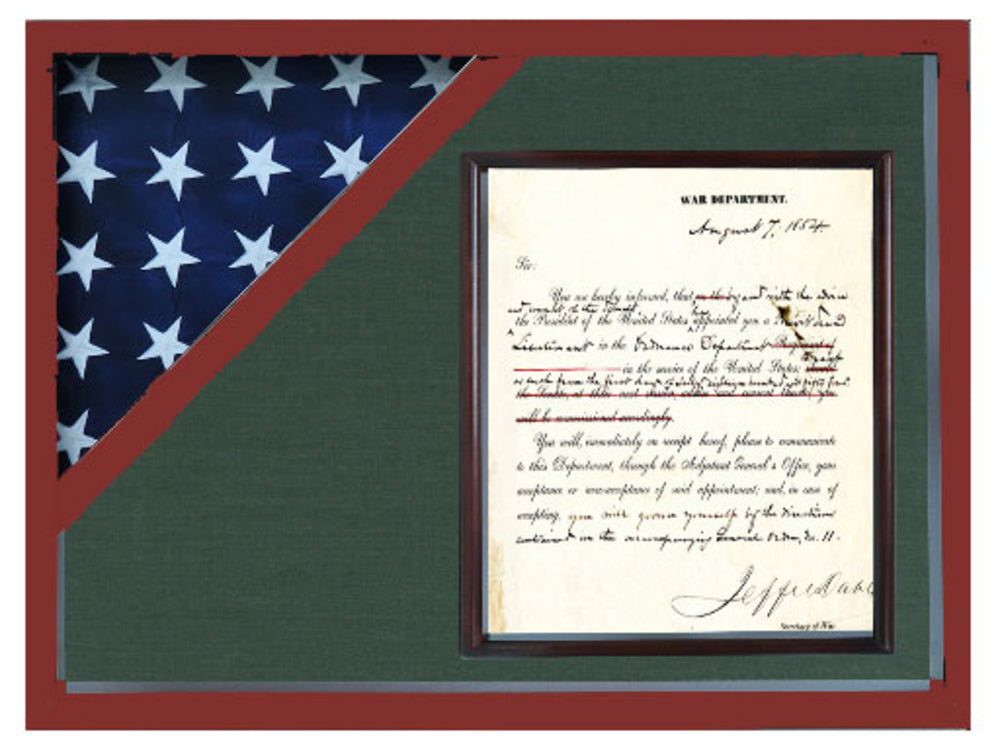 WAR DEPARTMENT.
August 7, 1854.
Sir:
You are hereby informed, that by and with the advice
and consent of the Senate
the President of the United States has appointed you a Second
Lieutenant in the Ordnance Department Regiment of
in the service of the United States: to rank
as such from the first day of July, eighteen hundred and fifty four.
will be commissioned accordingly.
You will, immediately on receipt hereof, please to communicate
to this Department, through the Adjutant General's Office, your
acceptance or non-acceptance of said appointment; and, in case of
accepting, you will govern yourself by the directions
contained in the accompanying General Order, No. 11.
Jeffn Davi
Secretary of War